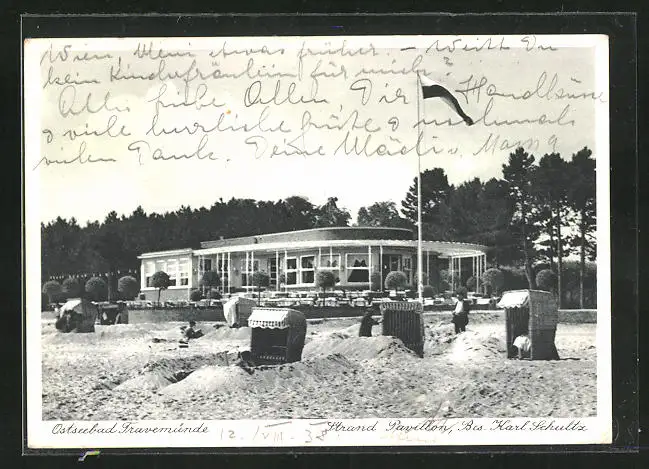 Wien, Meni etwas früher. – Weißt Du
kein Kinderfräulein für mich?
Alles Liebe Allen, Dir Handküsse
& viele herzliche Grüße & nochmals
vielen Dank. Deine Mädi
Ostseebad Travemünde 12./VII. 38 Strand Pavillon, Bes. Karl Schultz